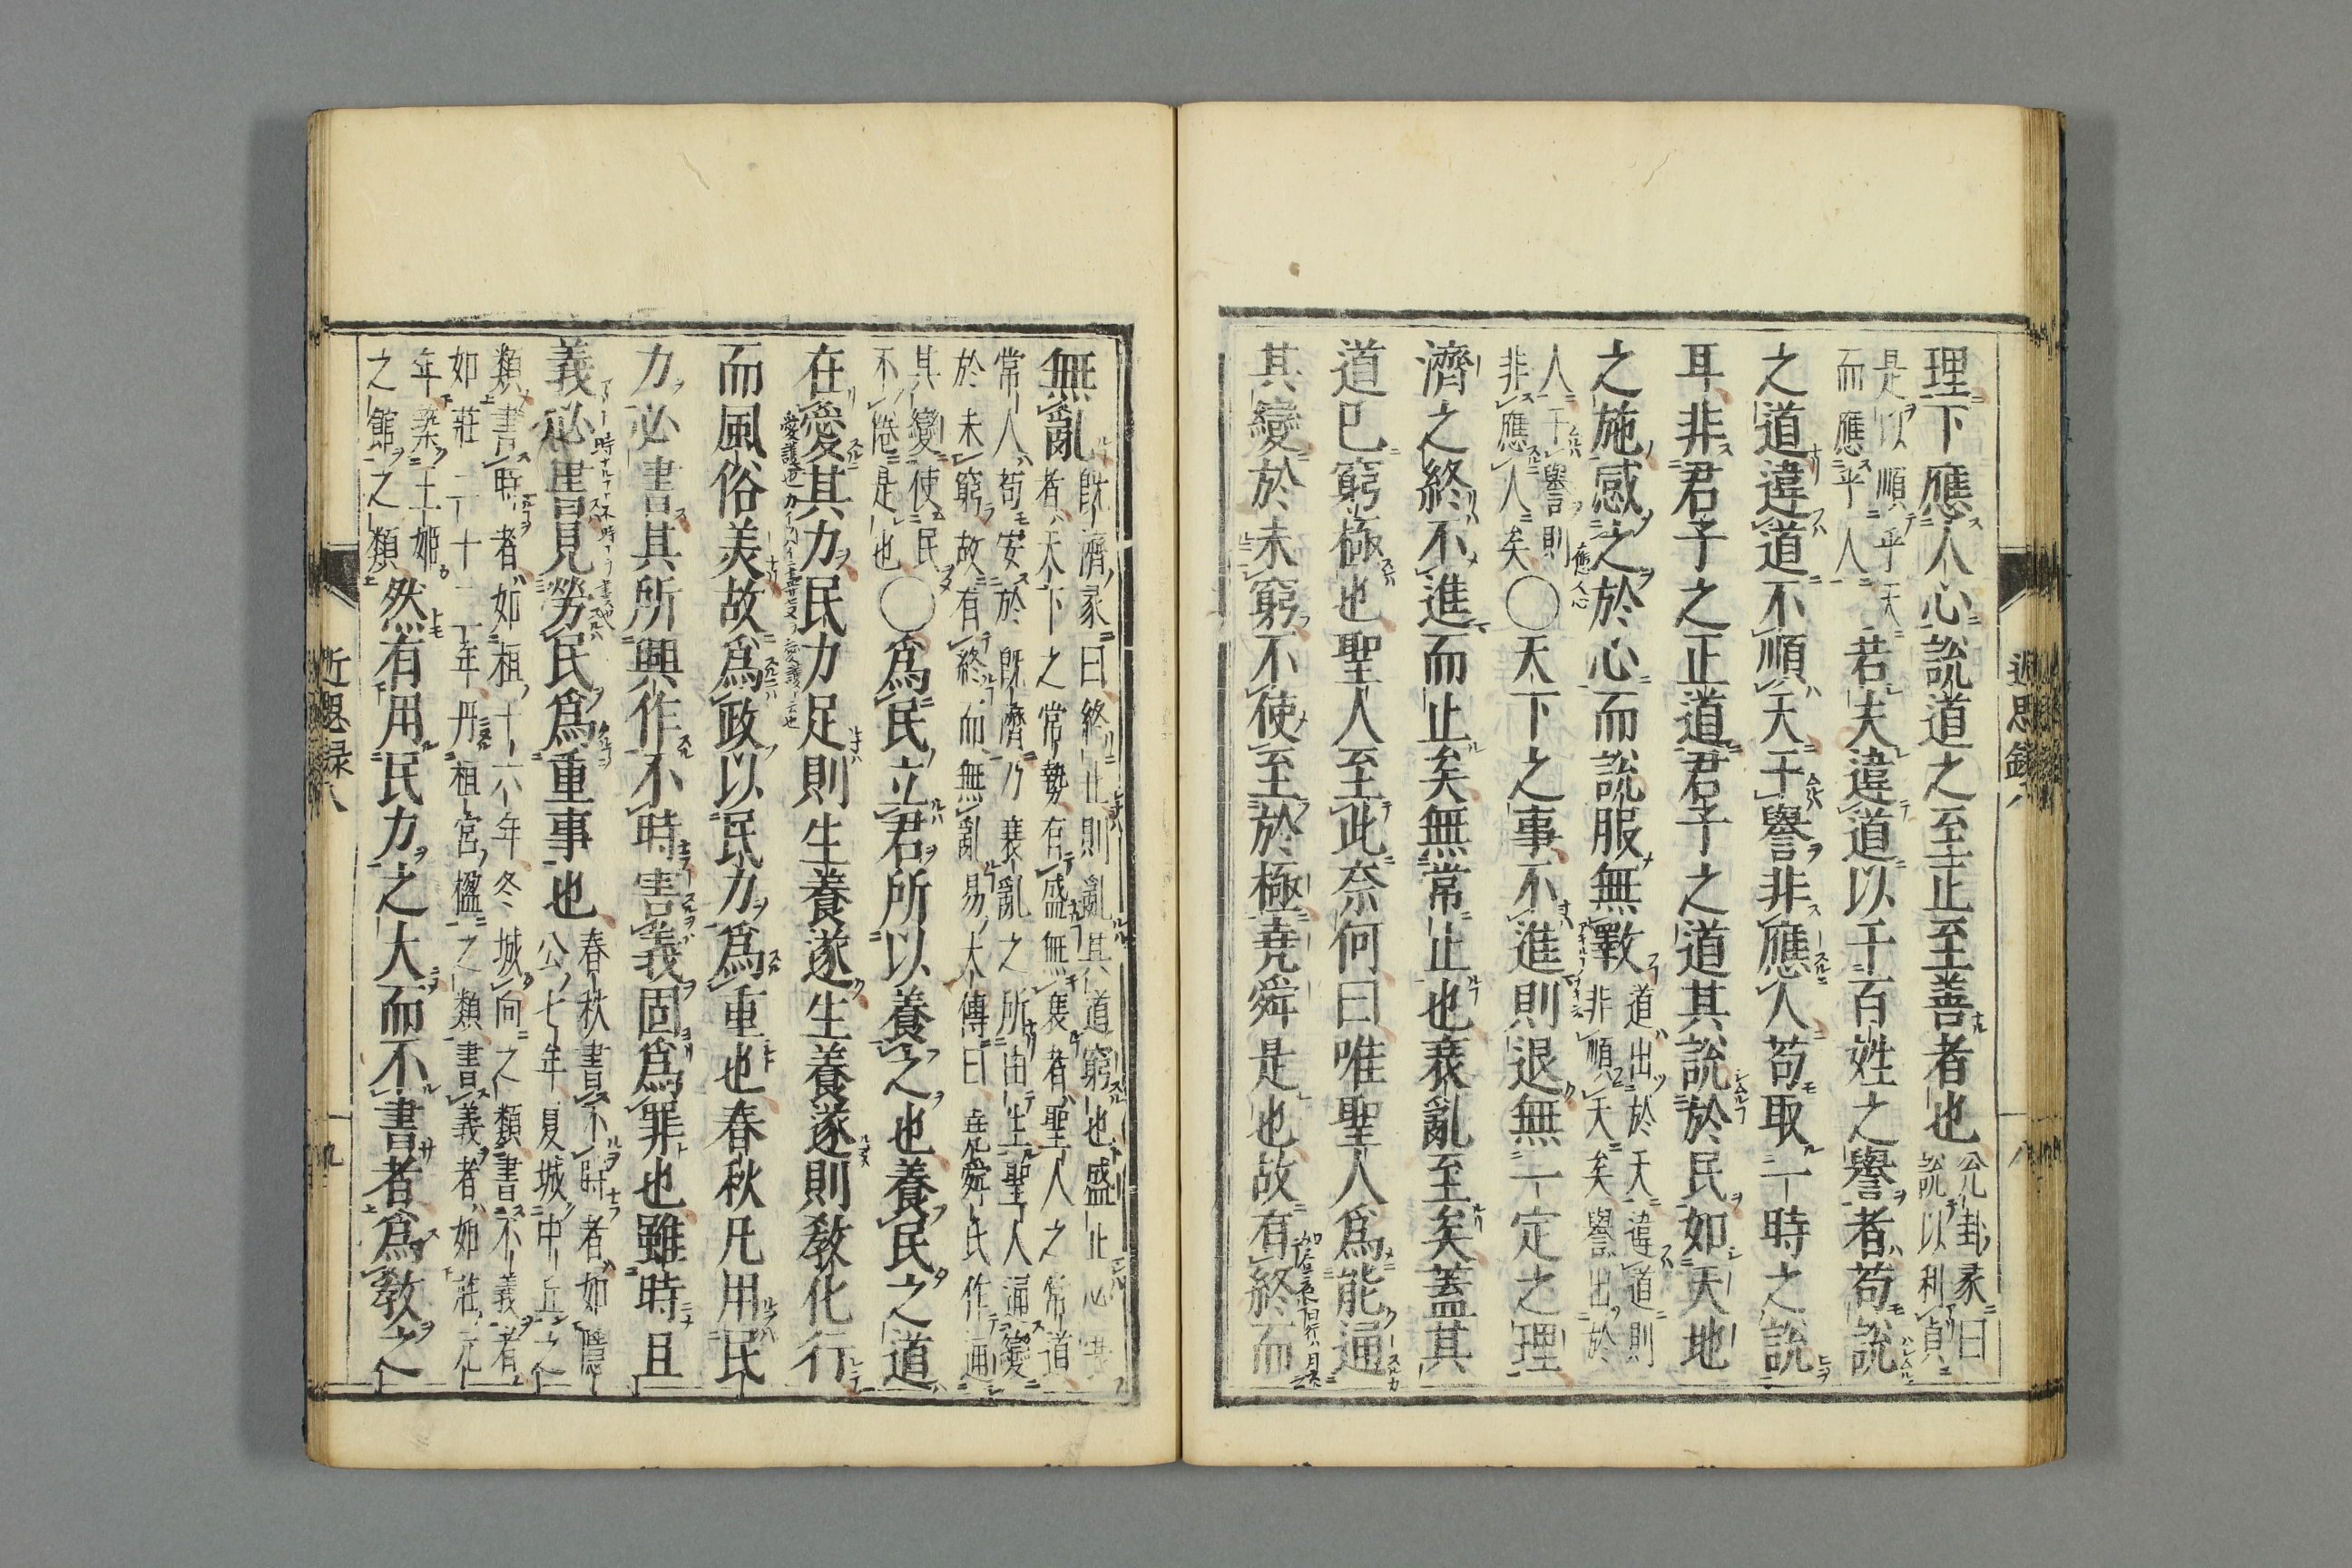 理下應人心說道之至正至善者也兊卦彖曰
說以利貞
是以順乎天
而應乎人若夫違道以干百姓之譽者苟說
之道違道不順天干譽非應人苟取一時之說
耳非君子之正道君子之道其說於民如天地
之施感之於心而說服無斁道出於天違道則
非順天矣譽出於
人干譽則
非應人矣〇天下之事不進則退無一定之理
濟之終不進而止矣無常止也衰亂至矣蓋其
道已窮極也聖人至此奈何曰唯聖人爲能通
其變於未窮不使至於極堯舜是也故有終而
近思錄八
八
無亂既濟彖曰終止則亂其道窮也盛止必衰
者天下之常勢有盛無衰者聖人之常道
常人苟安於既濟乃衰亂之所由生聖人通變
於未窮故有終而無亂易大傳曰堯舜氏作通
其變使民
不倦是也〇爲民立君所以養之也養民之道
在愛其力民力足則生養遂生養遂則敎化行
而風俗美故爲政以民力爲重也春秋凡用民
力必書其所興作不時害義固爲罪也雖時且
義必書見勞民爲重事也春秋書不時者如隱
公七年夏城中丘之
類書時者如桓十六年冬城向之類書不義者
如莊二十三年丹桓宮楹之類書義者如莊元
年築王姬
之館之類然有用民力之大而不書者爲敎之
近思錄八
九